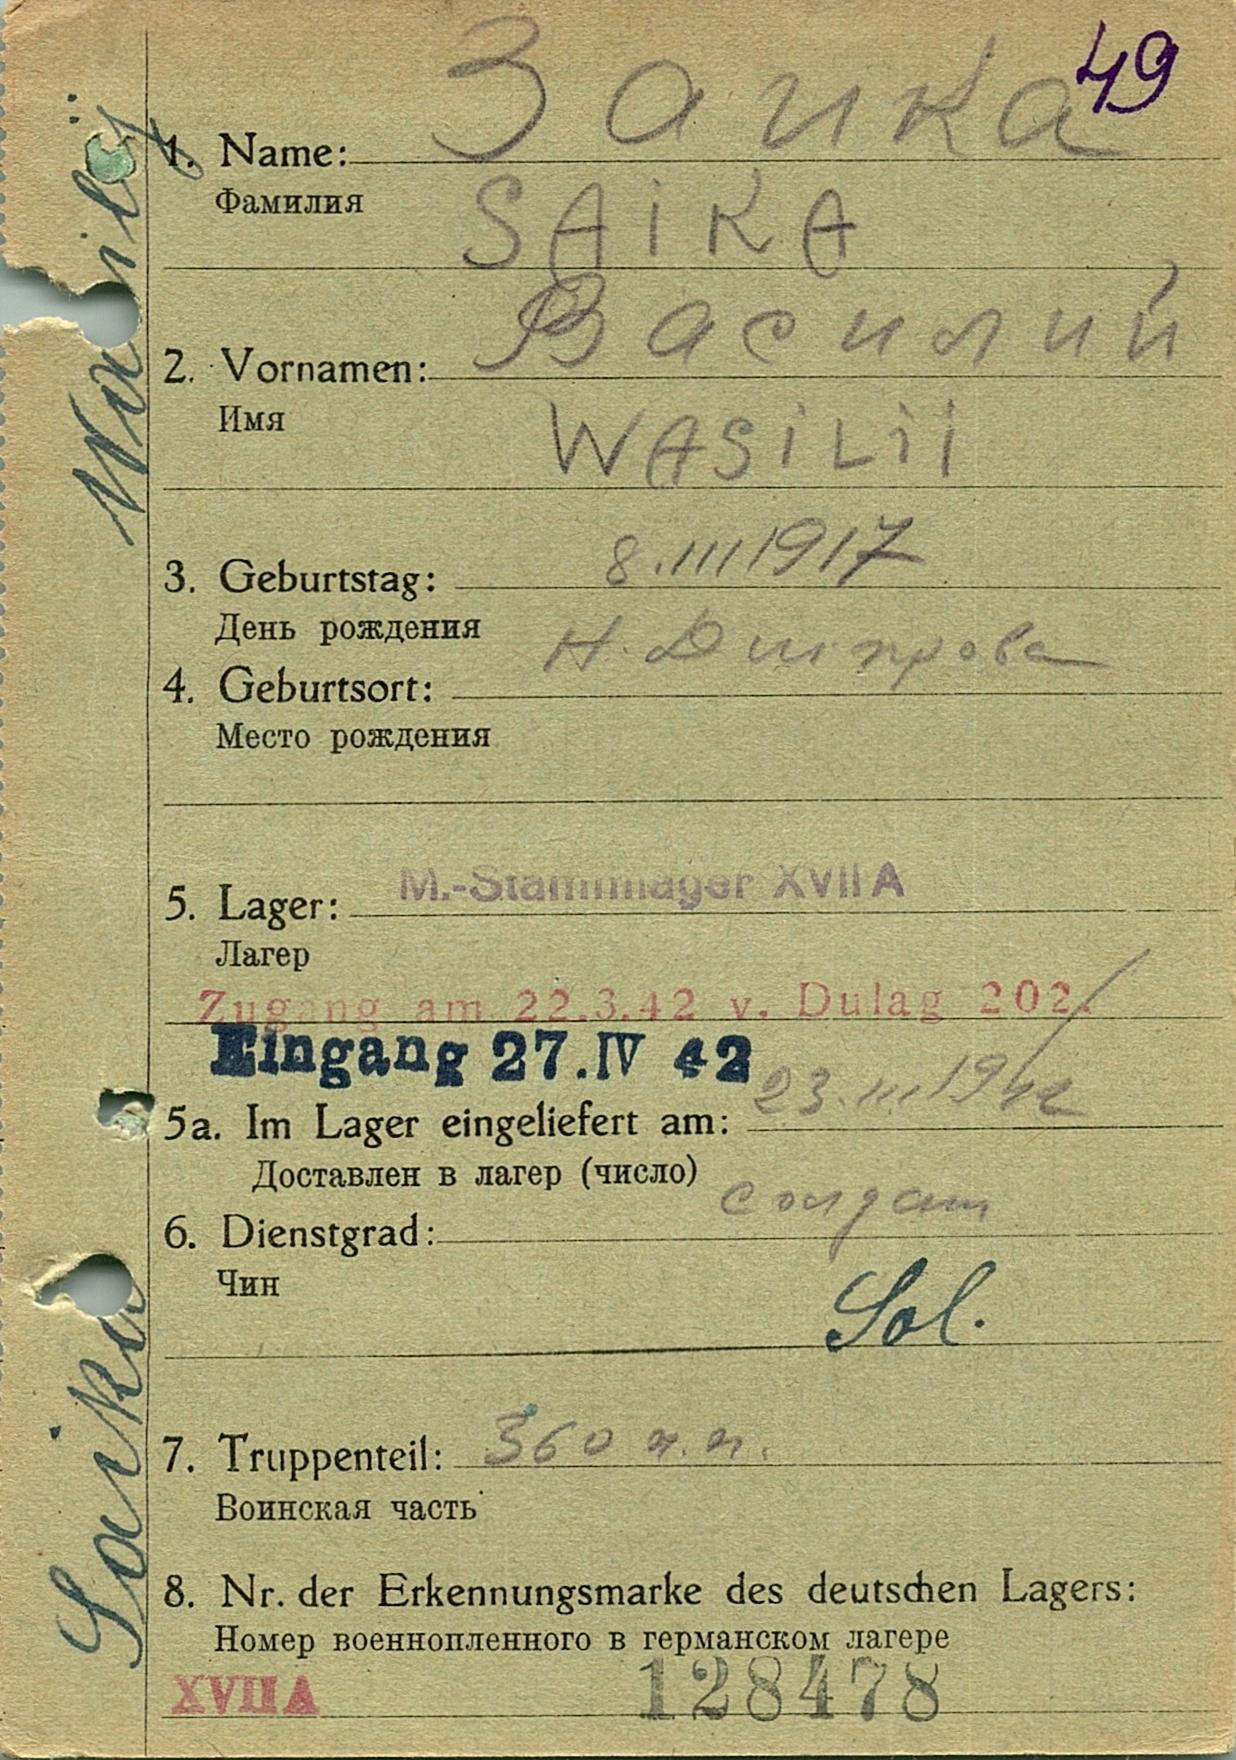 49
1. Name: Заика
Фамилия
SAiKA
2. Vornamen: Василий
Имя
WASiLii
3. Geburtstag: 8.III 1917
День рождения
4. Geburtsort: Н.
Место рождения
5. Lager: M.-Stammlager XVII A
Лагер
Zugang am 22.3.42 v. Dulag 202.
Eingang 27.IV 42
5a. Im Lager eingeliefert am: 23.III 1942
Доставлен в лагер (число)
6. Dienstgrad: солдат
Чин
Sol.
7. Truppenteil: 360
Воинская часть
8. Nr. der Erkennungsmarke des deutschen Lagers:
Номер военнопленного в германском лагере
XVII A 128478
Saika Wasilij